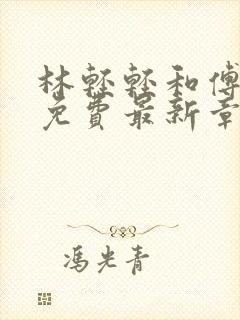 林軽軽和傅
免費最新章
馮光青